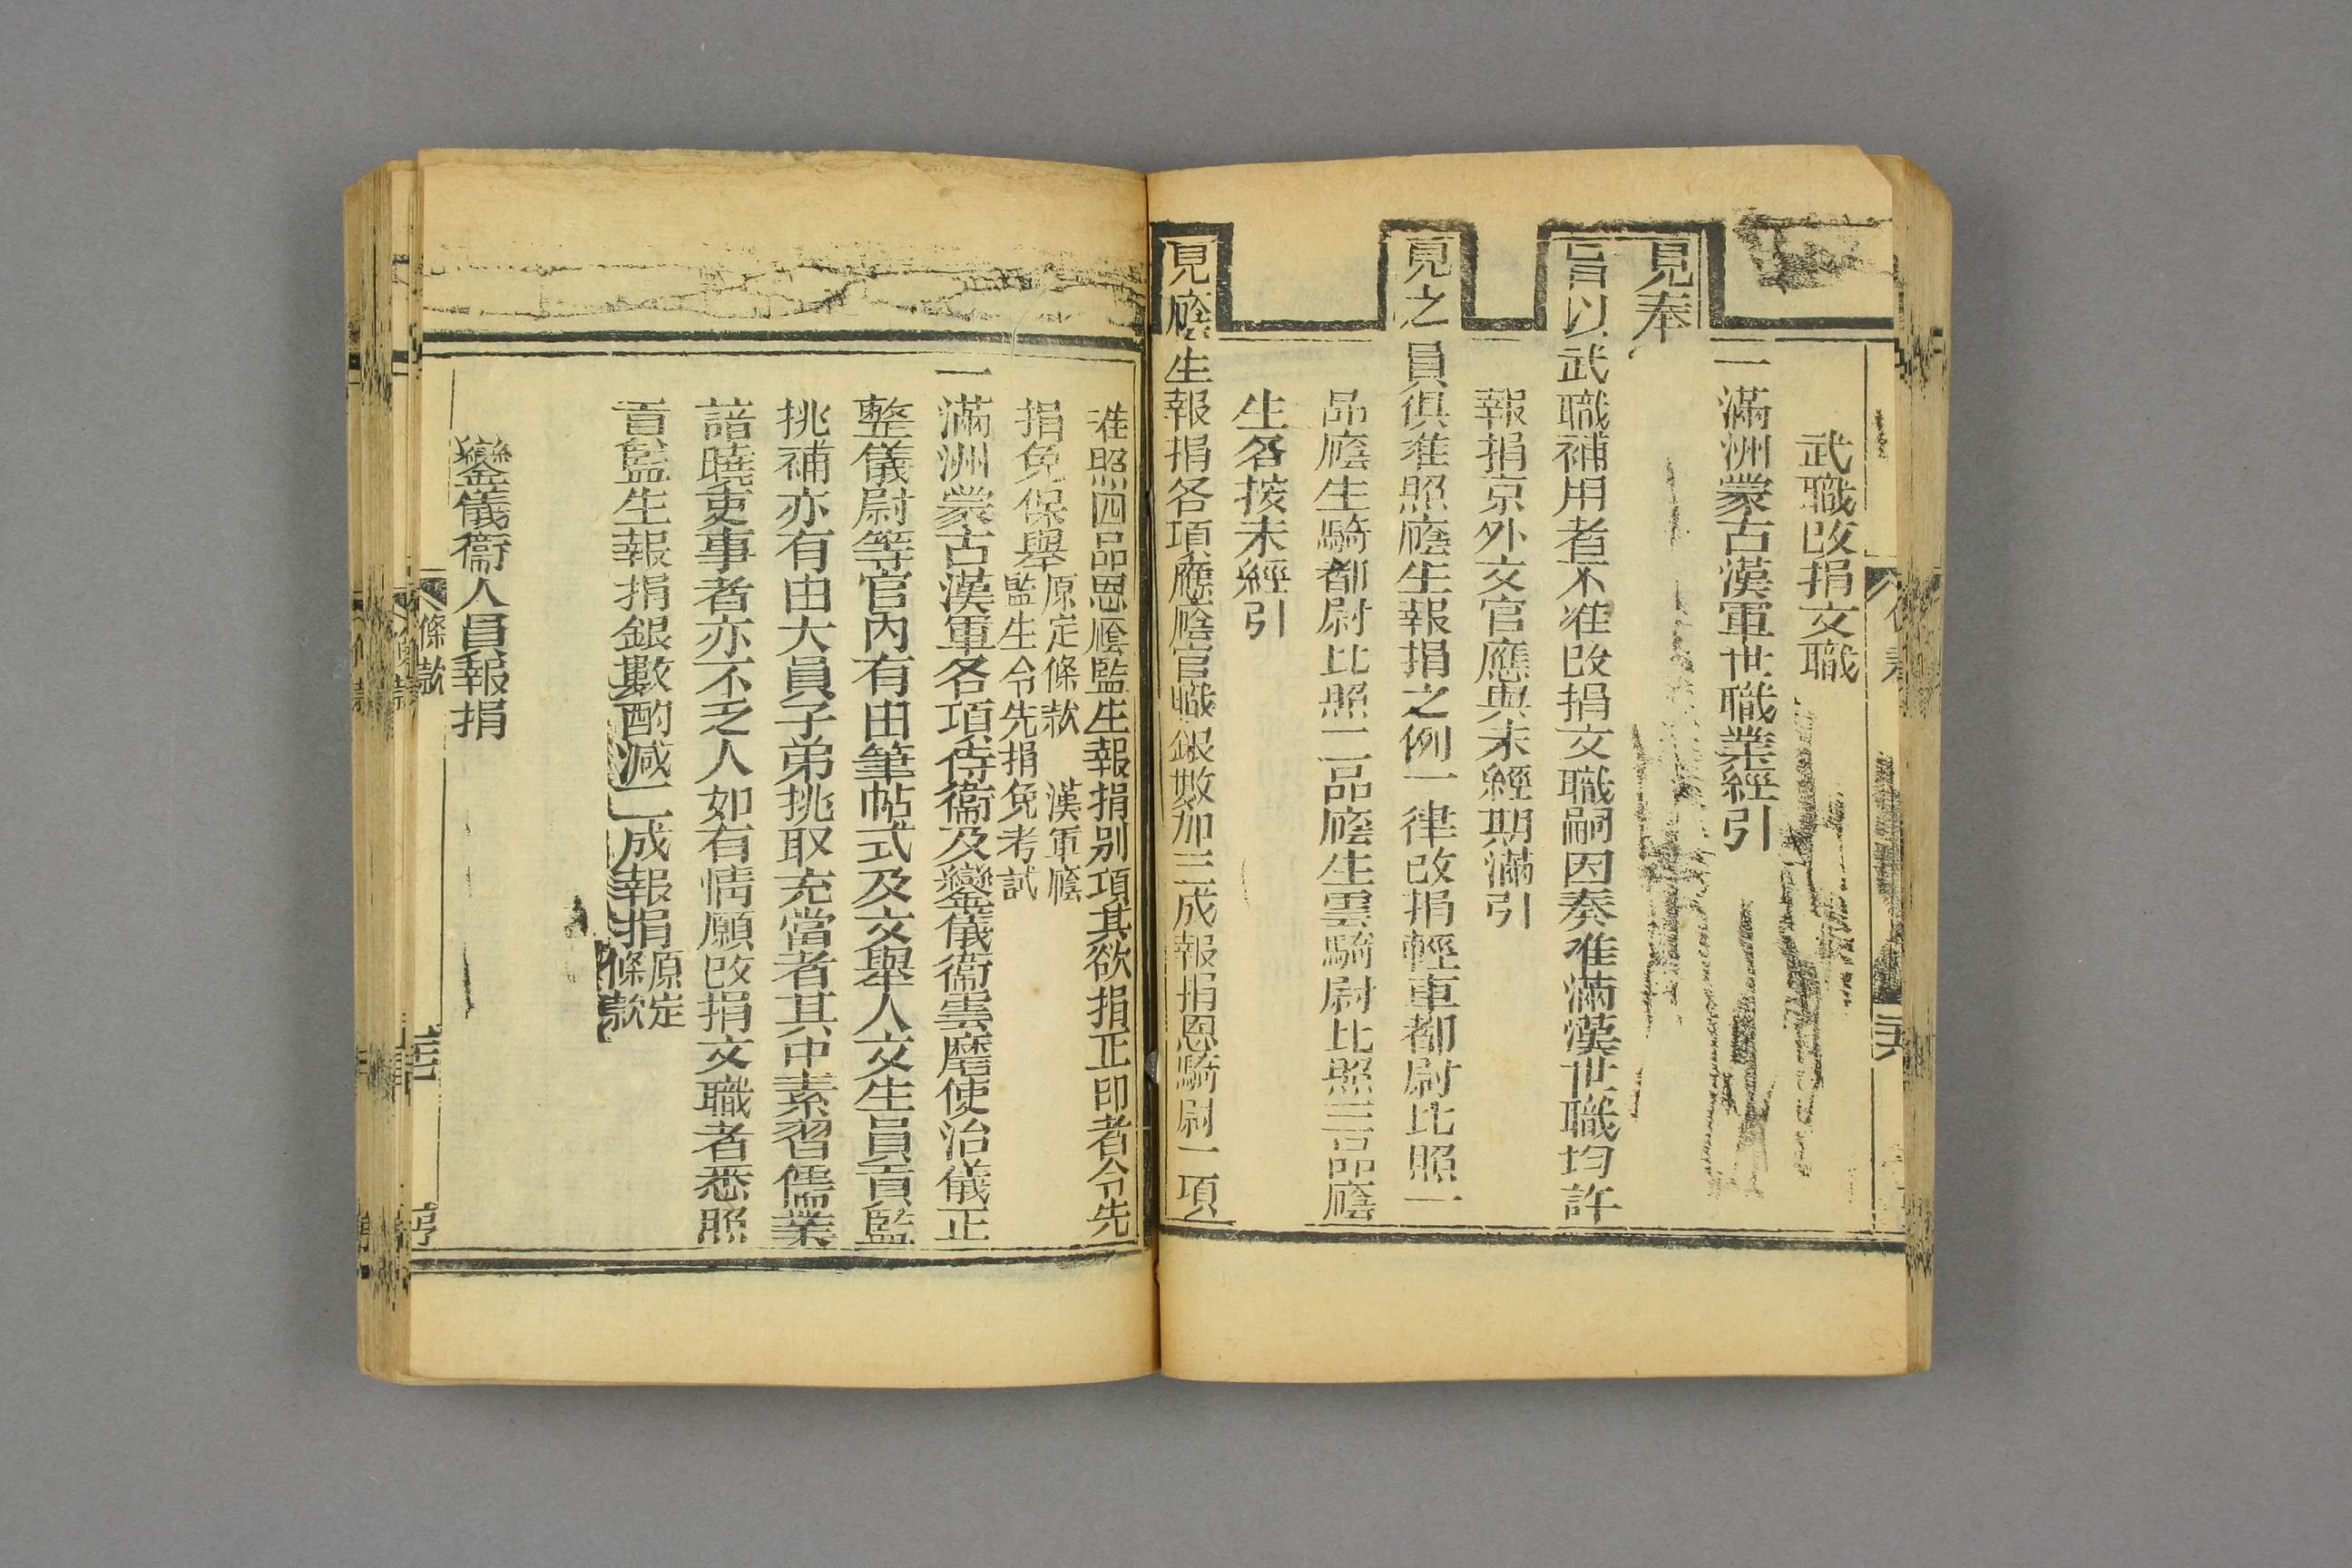 武職改捐文職
一滿洲蒙古漢軍世職業經引
見奉
旨以武職補用者不准改捐文職嗣因奏准滿漢世職均許
報捐京外文官應與未經期滿引
見之員俱准照廕生報捐之例一律改捐輕車都尉比照一
品廕生騎都尉比照二品廕生雲騎尉比照三品廕
生各按未經引
見廕生報捐各項應廕官職銀數加三成報捐恩騎尉一項
准照四品恩廕監生報捐別項其欲捐正印者令先
捐免保舉原定條款 漢軍廕
監生令先捐免考試
一滿洲蒙古漢軍各項侍衞及鑾儀衞雲麾使治儀正
整儀尉等官內有由筆帖式及文舉人文生員貢監
挑補亦有由大員子弟挑取充當者其中素習儒業
諳曉吏事者亦不乏人如有情願改捐文職者悉照
貢監生報捐銀數酌減二成報捐原定
條款
鑾儀衞人員報捐
條款